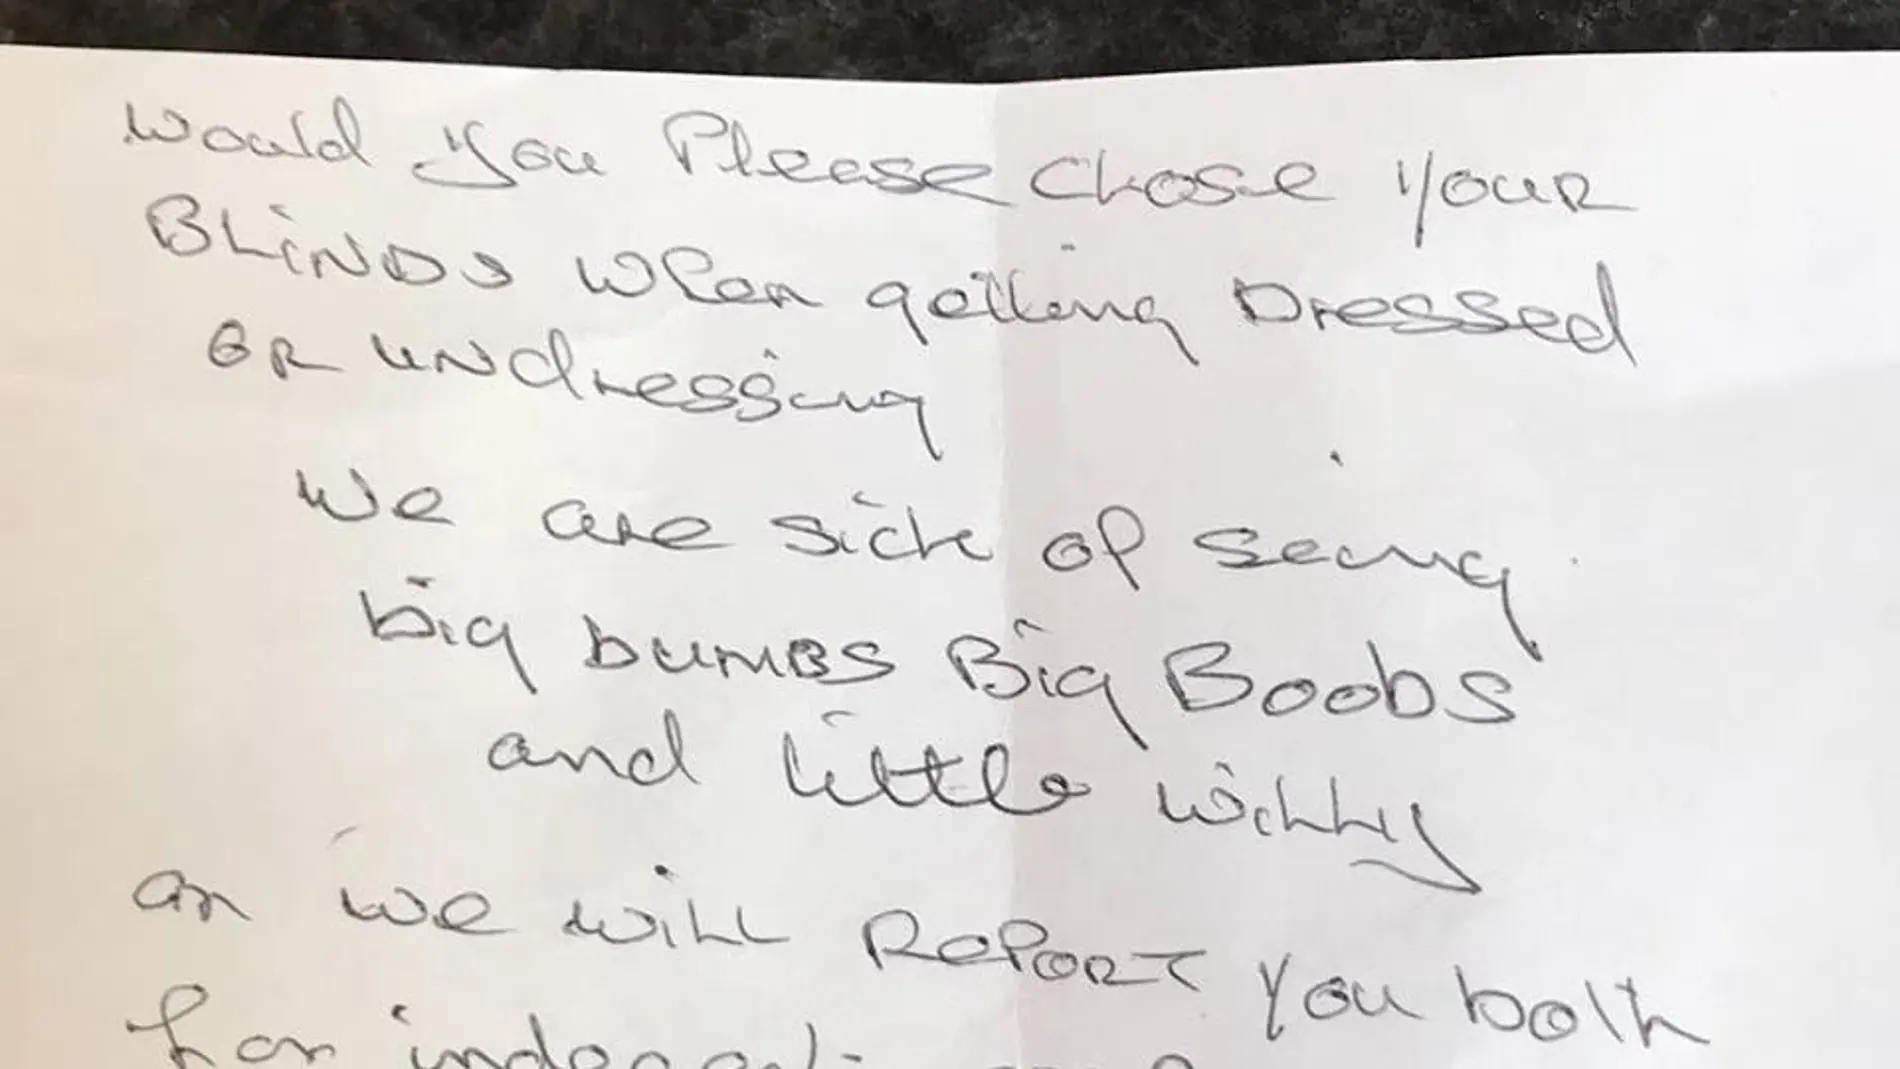 Would you Please Chose your
BLiNDS when getting Dressed
OR UNdressing
We are sick of seing
big bumBS Big Boobs
and little willy
or we will RePORT You both
for indecent